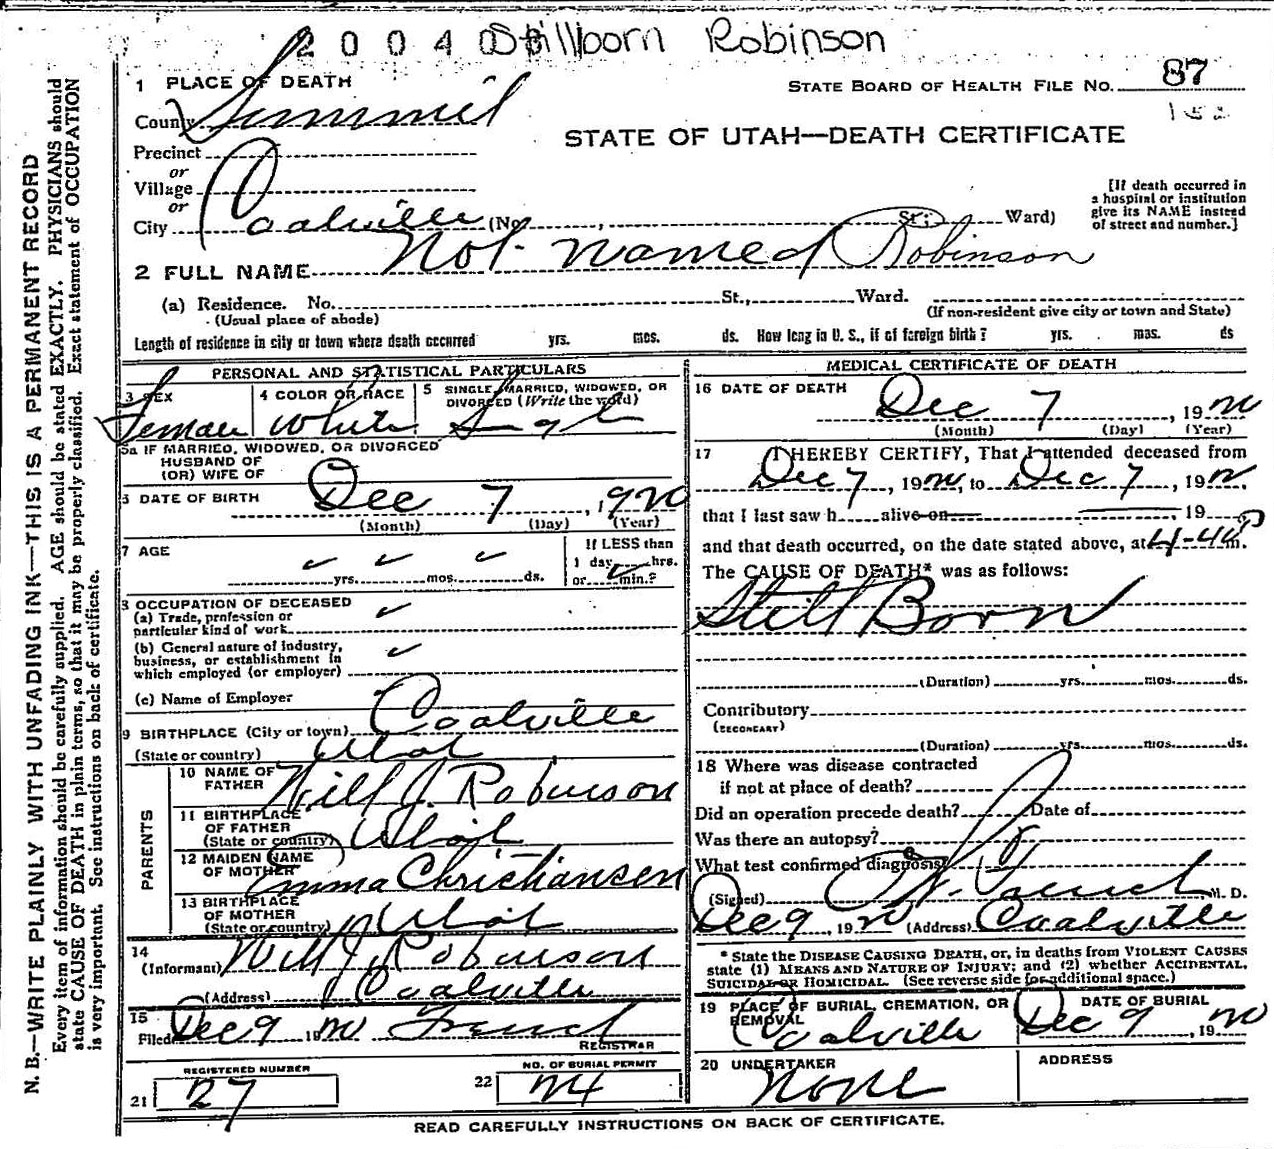 200408
Stillborn Robinson
1 PLACE OF DEATH
STATE BOARD OF HEALTH FILE NO. 87
County Summit
STATE OF UTAH—DEATH CERTIFICATE
Precinct
or
Village
or
City Coalville (No. , St.; Ward)
[If death occurred in
a hospital or institution
give its NAME instead
of street and number.]
2 FULL NAME Not named Robinson
(a) Residence. No. St., Ward.
(Usual place of abode)
(If non-resident give city or town and State)
Length of residence in city or town where death occurred yrs. mos. ds. How long in U. S., if of foreign birth? yrs. mos. ds
PERSONAL AND STATISTICAL PARTICULARS
3 SEX
Female
4 COLOR OR RACE
White
5 SINGLE, MARRIED, WIDOWED, OR
DIVORCED (Write the word)
Single
5a IF MARRIED, WIDOWED, OR DIVORCED
HUSBAND OF
(OR) WIFE OF
6 DATE OF BIRTH Dec 7, 1920
(Month) (Day) (Year)
7 AGE
yrs. mos. ds.
If LESS than
1 day hrs.
or min.?
8 OCCUPATION OF DECEASED
(a) Trade, profession or
particular kind of work
(b) General nature of industry,
business, or establishment in
which employed (or employer)
(c) Name of Employer
9 BIRTHPLACE (City or town) Coalville
(State or country) Utah
PARENTS
10 NAME OF
FATHER Will J. Robinson
11 BIRTHPLACE
OF FATHER
(State or country) Utah
12 MAIDEN NAME
OF MOTHER Emma Christiansen
13 BIRTHPLACE
OF MOTHER
(State or country) Utah
14
(Informant) Will J. Robinson
(Address) Coalville
15
Filed Dec 9 1920 French
REGISTRAR
REGISTERED NUMBER
21 27
NO. OF BURIAL PERMIT
22 24
MEDICAL CERTIFICATE OF DEATH
16 DATE OF DEATH Dec 7, 1920
(Month) (Day) (Year)
17 I HEREBY CERTIFY, That I attended deceased from
Dec 7, 1920, to Dec 7, 1920,
that I last saw h alive on , 19
and that death occurred, on the date stated above, at 4-40 P m.
The CAUSE OF DEATH* was as follows:
Still Born
(Duration) yrs. mos. ds.
Contributory
(SECONDARY)
(Duration) yrs. mos. ds.
18 Where was disease contracted
if not at place of death?
Did an operation precede death? Date of
Was there an autopsy?
What test confirmed diagnosis?
(Signed) M. D.
Dec 9, 1920 (Address) Coalville
* State the DISEASE CAUSING DEATH, or, in deaths from VIOLENT CAUSES
state (1) MEANS AND NATURE OF INJURY; and (2) whether ACCIDENTAL,
SUICIDAL OR HOMICIDAL. (See reverse side for additional space.)
19 PLACE OF BURIAL, CREMATION, OR
REMOVAL
Coalville
DATE OF BURIAL
Dec 9, 1920
20 UNDERTAKER
None
ADDRESS
READ CAREFULLY INSTRUCTIONS ON BACK OF CERTIFICATE.
N. B.—WRITE PLAINLY WITH UNFADING INK—THIS IS A PERMANENT RECORD
Every item of information should be carefully supplied. AGE should be stated EXACTLY. PHYSICIANS should
state CAUSE OF DEATH in plain terms, so that it may be properly classified. Exact statement of OCCUPATION
is very important. See instructions on back of certificate.